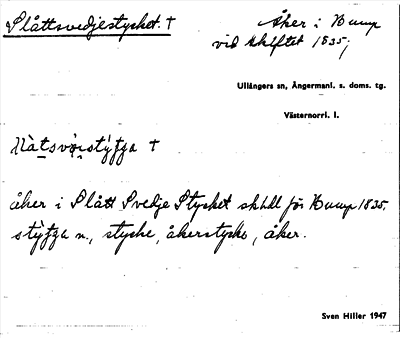 Slåttsvedjestycket. †
Åker i Bump
vid skiftet 1835;
Ullångers sn, Ångermanl. s. doms. tg.
Västernorrl. l.
†
åker i Slått Svedje Stycket sk för Bump 1835.
n., stycke, åkerstycke, åker.
Sven Hiller 1947